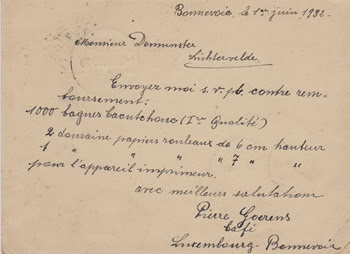 Bonnevoie, le 1er juin 1932.
Monsieur Denmunster
Lichtervelde.
Envoyez moi s.v.pl. contre rem-
boursement:
1000 bagues Caoutchouc (Ire Qualité)
2 douzaine papiers rouleaux de 6 cm hauteur
1 " " " " 7 " "
pour l'appareil imprimeur.
avec meilleurs salutation
Pierre Goerens
Café
Luxembourg-Bonnevoie